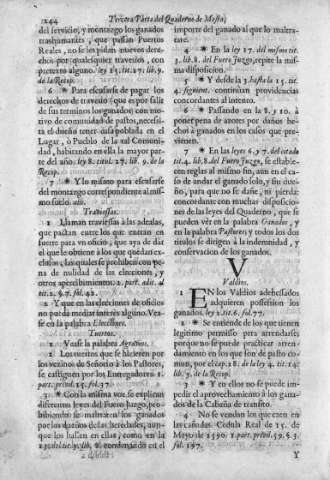 1244 Tercera Parte del Quaderno de Mesta,
del servicio, y montazgo los ganados
trashumantes, que passan Puertos
Reales, no se les pidan nuevos derechos
por qualesquier travesios, con
pretexto alguno. ley 15. tit. 27. lib. 9.
de la Recop.
6 * Para escusarse de pagar los
derechos de travesio (que es por salir
de sus terminos los ganados) con motivo
de comunidad de pastos, necessita
el dueño tener casa poblada en el
Lugar, ò Pueblo de la tal Comunidad,
habitando en ella la mayor parte
del año. ley 8. titul. 27. lib. 9. de la
Recop.
7 * Y lo mismo para escusarse
del montazgo correspondiente al mismo
fuero. ibi.
Traviessas.
1 Llaman traviessia à las adealas,
que pactan entre los que entran en
suerte para un oficio, que aya de dar
el que le obtiene à los que quedan excluidos,
las quales se prohiben con pena
de nulidad de las elecciones, y
otros apercibimientos. 1. part. adit. al
tit. 2. §. 7. fol. 42.
2 Y que en las elecciones de oficios
no pueda mediar interès alguno. Vease
en la palabra Elecciones.
Tuertos.
1 Vease la palabra Agravios.
2 Los tuertos que se hicieren por
los vezinos de Señorìo à los Pastores,
se castiguen por los Entregadores 1.
part. privil. 15. fol. 37.
3 * Con la misma voz se explican
diferentes leyes del Fuero Juzgo, prohibiendo
se maltraten los ganados
por los dueños de las heredades, aunque
los hallen en ellas, como en la
importe del ganado al que lo maltratare.
4 * En la ley 17. del mismo tit.
3. lib. 8. del Fuero Juzgo, repite la misma
disposicion.
5 * Y desde la 3. hasta la 15. tit.
4. siguient. continùan providencias
concordantes al intento.
6 * Passando en la 8. y 10. à
poner pena de azotes por daños hechos
à ganados en los casos que previenen.
7 * En las leyes 6. y 7. del citado
tit. 4. lib. 8. del Fuero Juzgo, se establecen
reglas al mismo fin, aun en el caso
de andar el ganado solo, y sin dueño,
para que no se dañe, ni pierda:
concordante con muchas disposiciones
de las leyes del Quaderno, que se
pueden vèr en la palabra Ganados, y
en la palabra Pastores; y todos los dos
titulos se dirigen à la indemnidad, y
conservacion de los ganados.
V
Valdìos.
1 EN los Valdìos adehesados
adquieren possession los
ganados. ley 2. tit. 6. fol. 77.
2 * Se entiende de los que tienen
legitimo permisso para arrendarse;
porque no se puede practicar arrendamiento
en los que son de pasto comun,
por el cap. 28. de la ley 4. tit. 14.
lib. 3. de la Recop.
3 * Y en ellos no se puede impedir
el aprovechamiento à los ganados
de la Cabaña de transito.
4 No se vendan los que estèn en
las cañadas. Cedula Real de 15. de
Mayo de 1590. 1. part. privil. 59. §. 3.
fol. 197.
Y